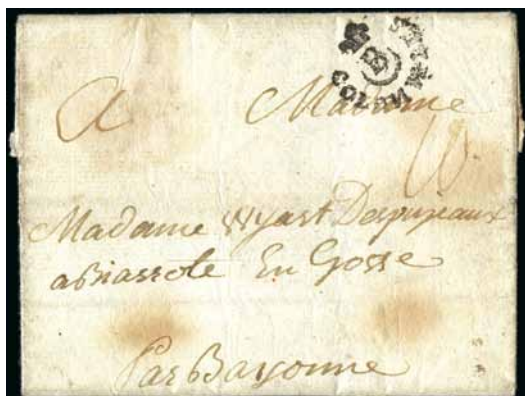 A Madame
Madame Wyart Despujeaux
a Biassote En Gosse
Par Bayonne